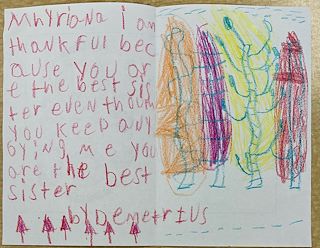 Mhyriana i am
thankful bec
ause you ar
e the best sis
ter even thoum
you keep any
bying me you
are the best
sister
by Demetrius